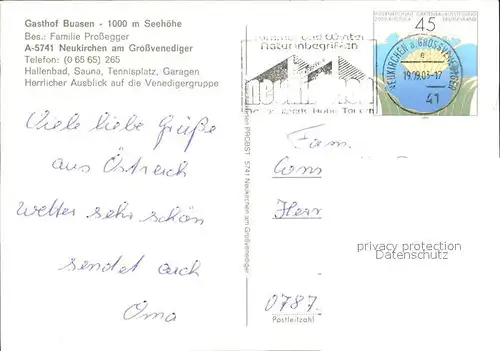 Gasthof Buasen - 1000 m Seehöhe
Bes.: Familie Proßegger
A-5741 Neukirchen am Großvenediger
Telefon: (0 65 65) 265
Hallenbad, Sauna, Tennisplatz, Garagen
Herrlicher Ausblick auf die Venedigergruppe
Viele liebe Grüße
aus Östreich
Wetter sehr schön
sendet auch
Oma
PROBST · 5741 Neukirchen am Großvenediger
Sommer und Winter
Naturinbegriffen
neukirchen
Hohe Tauern
45
NEUKIRCHEN a. GROSSVENEDIGER
19.09.03-17
41
Fam.
Herr
0787
Postleitzahl
privacy protection
Ansichtskarten